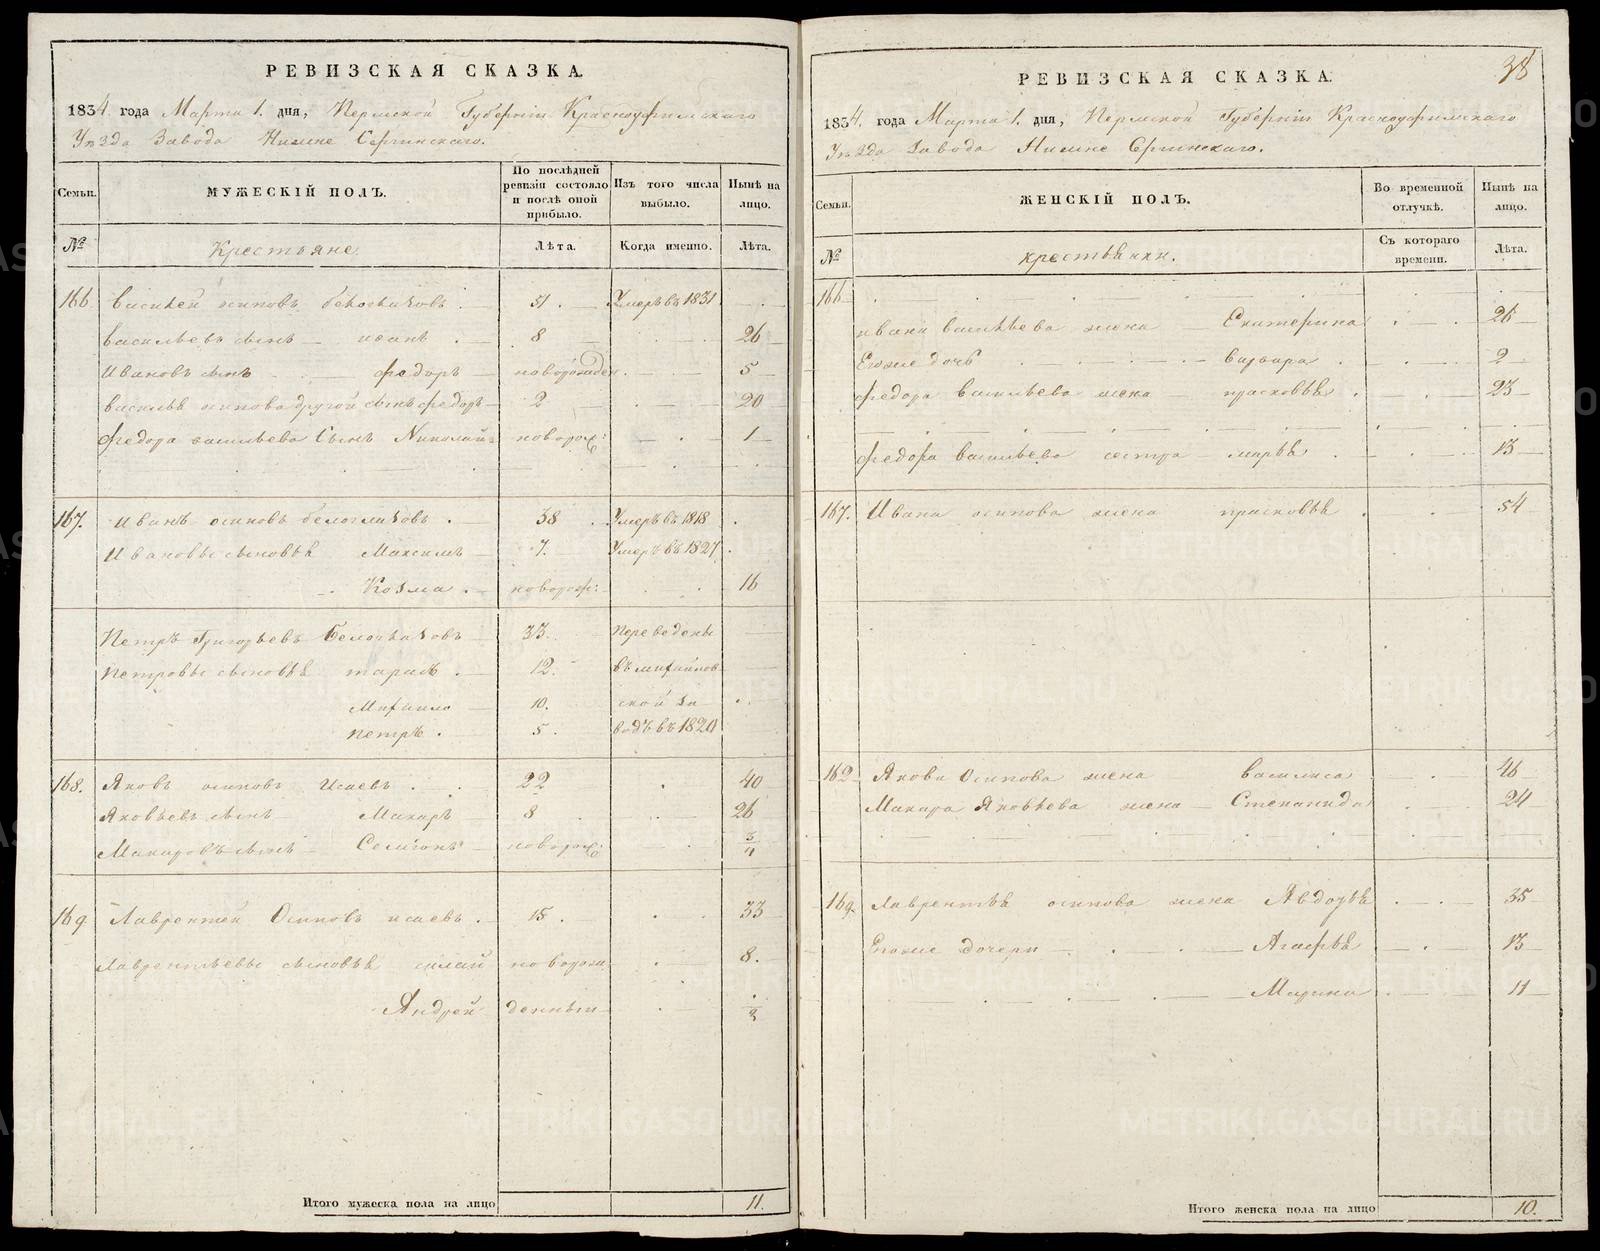 РЕВИЗСКАЯ СКАЗКА.
1834 года Марта 1. дня, Пермской Губернiи Красноуфимскаго
Уѣзда Завода Нижне Сергинскаго.
Семьи.
МУЖЕСКIЙ ПОЛЪ.
По послѣдней ревизiи состояло и послѣ оной прибыло.
Изъ того числа выбыло.
Нынѣ на лицо.
№
Крестьяне
Лѣта.
Когда именно.
Лѣта.
166. Василей осиповъ 51. Умеръ въ 1831.
Васильевъ сынъ иванъ 8 26
Ивановъ сынъ федоръ новорожден. 5
василья осипова другой сынъ федоръ 2 20
федора васильева сынъ Николай новорож: 1
167. Иванъ осиповъ 38 Умеръ въ 1818
Ивановы сыновья Максимъ 7. Умеръ въ 1827
Козма новорож: 16
Петръ Григорьевъ 33. переведены
Петровы сыновья тарасъ 12. въ михайлов
Михаило 10. ской за
петръ 5. водъ въ 1820
168. Яковъ осиповъ Исаевъ 22 40
Яковлевъ сынъ Макаръ 8 26
Макаровъ сынъ новорож: 3/4
169. Лаврентей Осиповъ исаевъ. 15. 33
Лаврентьевы сыновья новорож 8.
Андрей денныи
Итого мужеска пола на лицо 11.
38
РЕВИЗСКАЯ СКАЗКА.
1834. года Марта 1. дня, Пермской Губернiи Красноуфимскаго
Уѣзда Завода Нижне Сргинскаго.
Семьи.
ЖЕНСКIЙ ПОЛЪ.
Во временной отлучкѣ.
Нынѣ на лицо.
№
крестьянки.
Съ котораго времени.
Лѣта.
166.
ивана васильева жена Екатерина 26
Егоже дочь варвара 2
федора васильева жена прасковья 23
федора васильева сестра марья 13
167. Ивана осипова жена прасковья 54
168 Якова Осипова жена василиса 46
Макара Яковлева жена Степанида 24
169. Лаврентья осипова жена Авдотья 35
Егоже дочери Агафья 13
Марина 11
Итого женска пола на лицо 10.
METRIKI.GASO-URAL.RU